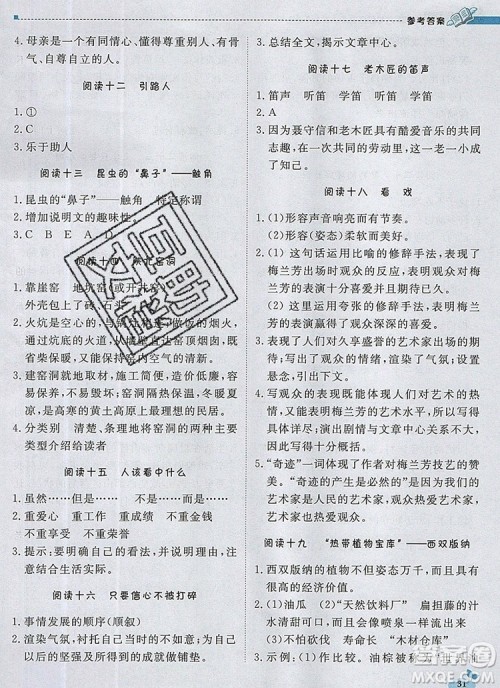 参考答案
4. 母亲是一个有同情心、懂得尊重别人、有骨
气、自尊自立的人。
阅读十二 引路人
1. ①
2. C
3. 乐于助人
阅读十三 昆虫的“鼻子”——触角
1. 昆虫的“鼻子”——触角 特定称谓
2. 增加说明文的趣味性。
3. C B E A D
阅读十四 陕北窑洞
1. 靠崖窑 地坑窑(或开井窑)
外壳包上了砖、石头
2. 火炕是空心的,与锅灶相连,做饭的烟火,
通过炕底,从墙跟直达窑顶的烟囱,既
省柴保暖,又可保持窑内空气的清新。
3. 建窑洞就地取材,施工简便,可节省大
量建筑材料;窑洞隔热保温性能好,冬
暖夏凉,是高寒的黄土高原上最理想的民居。
4. 分类别 清楚、条理地将窑洞的两种主要
类型介绍给读者
阅读十五 人该看中什么
1. 虽然——但是 不是——而是
2. 重爱心 重工作 重成功 不重金钱
不重享受 不重荣誉
3. 提示:要明确自己的看法,并谈到现实生
活,联系生活谈出自己的感受。
阅读十六 只要信心不被打碎
1. 事情发展的顺序(顺叙)
2. 渲染气氛,衬托人物的心情,并为以后
的坚强不屈的成就做铺垫。
3. 总结全文,揭示文章中心。
阅读十七 老木匠的笛声
1. 笛声 听笛 学笛 听笛
2. A
3. 因为聂守信和老木匠具有酷爱音乐的共同
志趣,在一次共同的劳动里,这一共同
志趣把他们联系在一起。
阅读十八 看戏
1. (1)形容声音响亮而有节奏。
(2)形容(姿态)柔软而美好。
2. (1)这句话运用比喻的修辞手法,表现了
梅兰芳出场时对观众的巨大吸引力。
(2)运用了夸张的修辞手法,写出了梅兰芳
的表演赢得了观众深深的喜爱。
3. 表现了人们对久享盛誉的艺术家出场的期
待;写出了观众的情绪,渲染了气氛;引
出了下文。
4. 写观众的表现更能体现出人们对梅兰芳艺术
的喜爱,以及梅兰芳的艺术水平之高,影
响之大;演出剧情与文章中心无关,所以
不写。
5. (1)“奇迹”一词体现了梅兰芳技艺的高超。
(2)“奇迹”的产生是因为人们热爱自己的
艺术家,艺术家们也热爱自己的人民,艺
术家和人民的心是相通的;更因为我们的
艺术家和人民也热爱艺术。
阅读十九 “热带植物宝库”——西双版纳
1. 西双版纳的植物不但千姿百态,而且有很
高的经济价值。
2. (1)油瓜 “天然饮料厂” 扁担藤的汁水
(2)云树 寿命最长 “木材仓库”
3. 示例:(1)作比较。油棕被称为“世界油
51